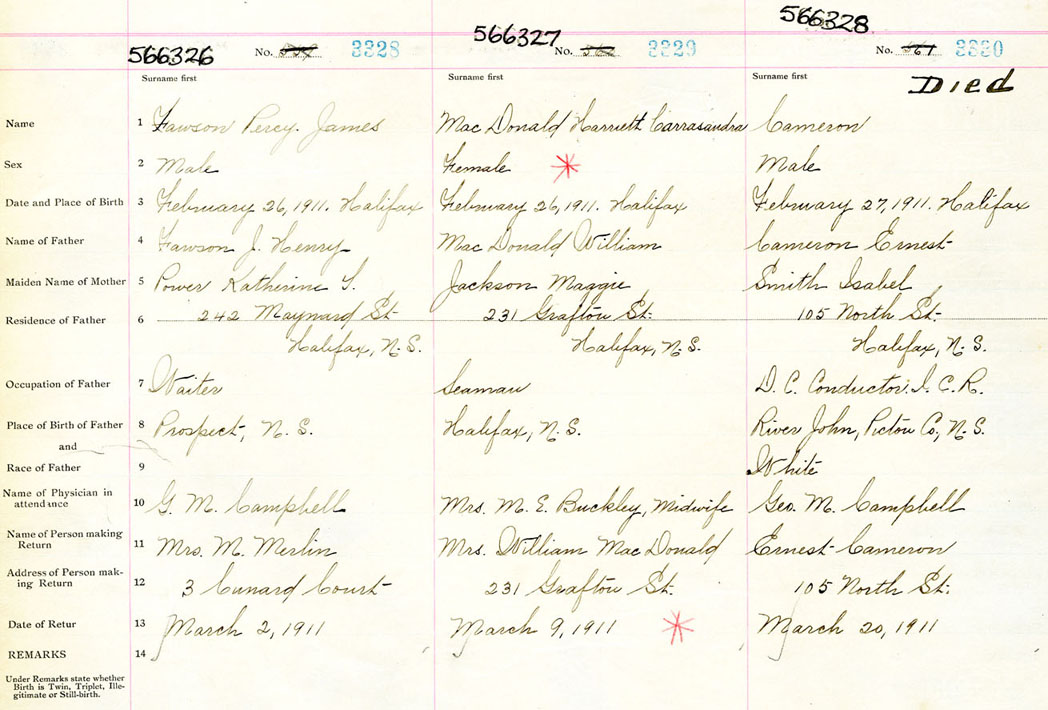 566326 No. 3328 566327 No. 3329 566328 No. 3330
Surname first Surname first Surname first Died
Name 1 Fawson Percy James Mac Donald Harriett Carrasandra Cameron
Sex 2 Male Female Male
Date and Place of Birth 3 February 26, 1911. Halifax February 26, 1911. Halifax February 27, 1911. Halifax
Name of Father 4 Fawson J. Henry Mac Donald William Cameron Ernest
Maiden Name of Mother 5 Power Katherine T. Jackson Maggie Smith Isabel
Residence of Father 6 242 Maynard St. 231 Grafton St. 105 North St.
Halifax, N.S. Halifax, N.S. Halifax, N.S.
Occupation of Father 7 Waiter Seaman D. C. Conductor. I. C. R.
Place of Birth of Father 8 Prospect, N. S. Halifax, N.S. River John, Pictou Co, N.S.
and
Race of Father 9 White
Name of Physician in attendance 10 G. M. Campbell Mrs. M. E. Buckley, Midwife Geo. M. Campbell
Name of Person making Return 11 Mrs. M. Merlin Mrs. William Mac Donald Ernest Cameron
Address of Person mak-
ing Return 12 3 Cunard Court 231 Grafton St. 105 North St.
Date of Retur 13 March 2, 1911 March 9, 1911 March 20, 1911
REMARKS 14
Under Remarks state whether
Birth is Twin, Triplet, Ille-
gitimate or Still-birth.